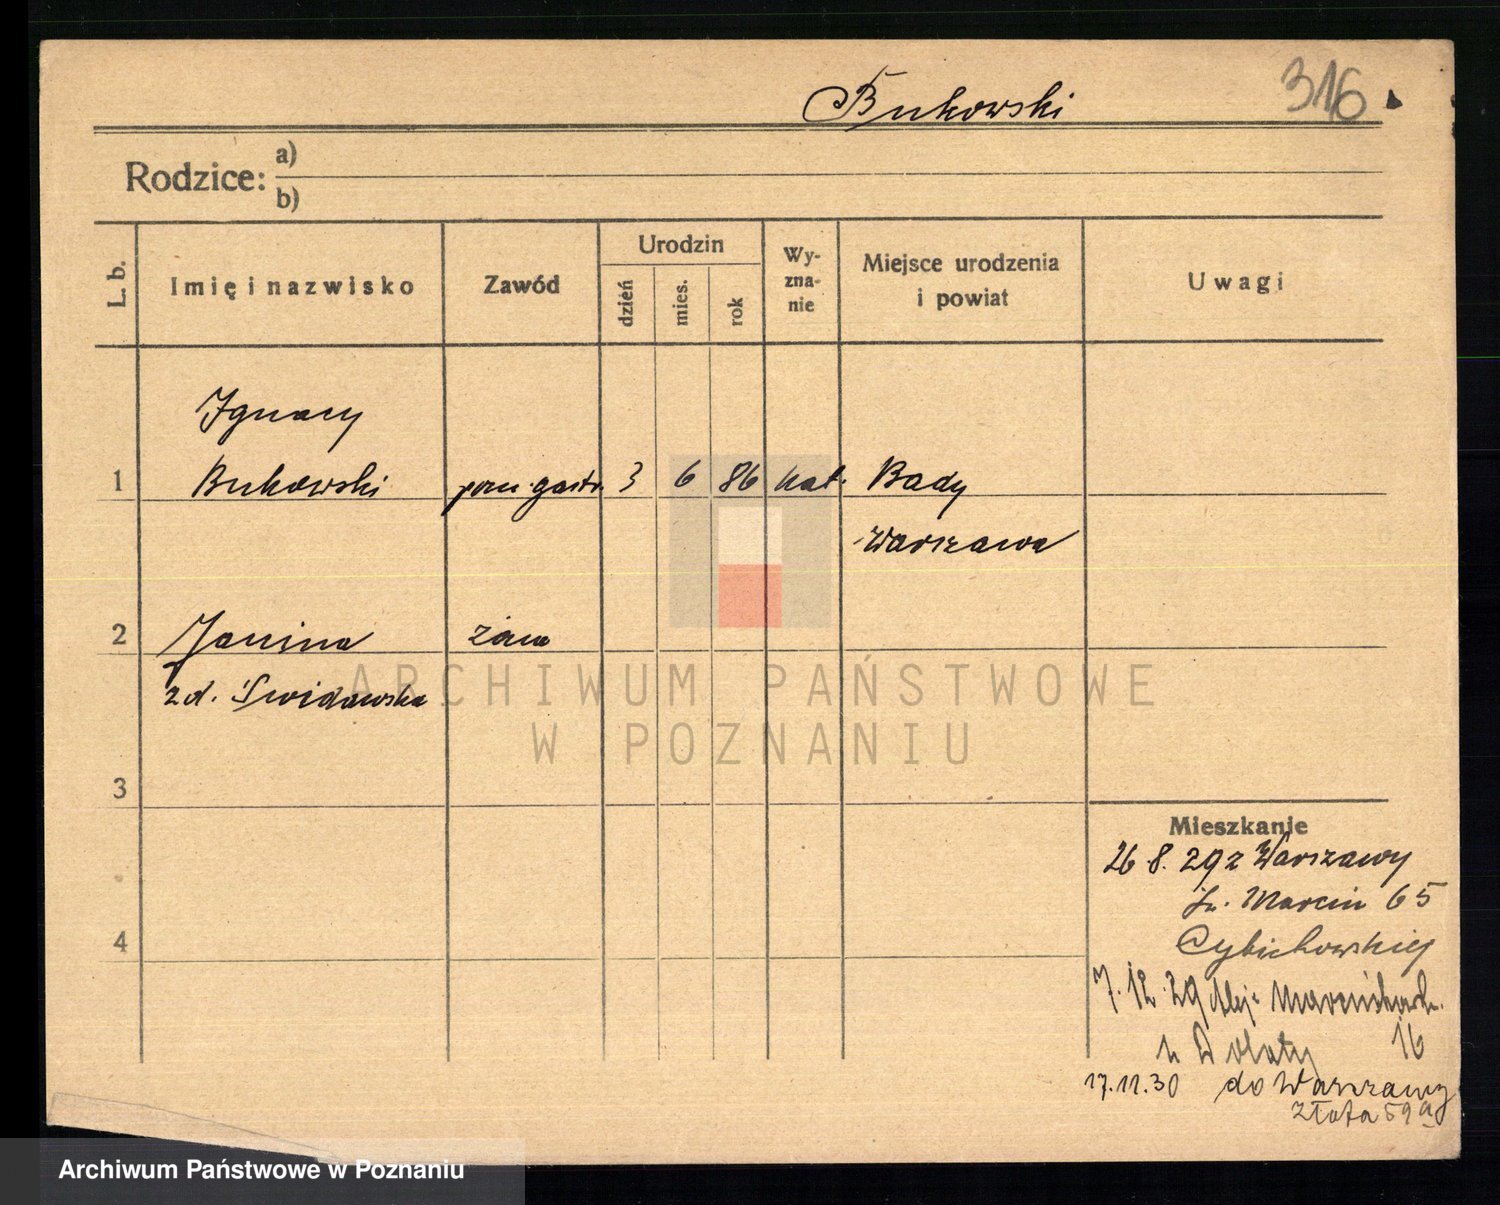 Bukowski
316
Rodzice: a)
b)
L. b.
Imię i nazwisko
Zawód
Urodzin
dzień
mies.
rok
Wy-
zna-
nie
Miejsce urodzenia
i powiat
Uwagi
Ignacy
1 Bukowski prac. gastr. 3 6 86 kat. Bady
Warszawa
2 Janina żona
zd. Swidawska
ARCHIWUM PAŃSTWOWE
W POZNANIU
3
4
Mieszkanie
26.8.29 z Warszawy
Św. Marcin 65
Cybichowskiej
7.12.29 Alej. Marcinkowsk.
16
17.11.30 do Warszawy
Złota 59a
Archiwum Państwowe w Poznaniu